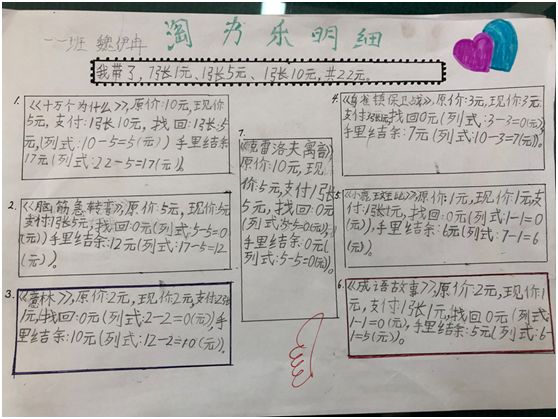 淘书乐明细
一一班 魏伊冉
我带了,7张1元、1张5元、1张10元,共22元。
1.
《十万个为什么》,原价:10元,现价:
5元,支付:1张10元,找回:1张5
元,(列式:10-5=5(元))手里结余:
17元(列式:22-5=17(元))。
2.
《脑筋急转弯》,原价:5元,现价:5元
支付:1张5元,找回:0元(列式:5-5=0
(元))手里结余:12元(列式:17-5=12
(元))。
3.
《意林》,原价:2元,现价:2元,支付:2张
1元,找回:0元(列式:2-2=0(元)),手
里结余:10元(列式:12-2=10(元))。
4.
保卫战》,原价:3元,现价:3元
支付:3张1元,找回0元(列式:3-3=0(元))
手里结余:7元(列式:10-3=7(元))。
5
原价:1元,现价:1元支
付:1张1元,找回:0元(列式:1-1=0
(元)),手里结余:6元(列式:7-1=6
(元))。
6.
《成语故事》,原价:2元,现价:1
元,支付:1张1元,找回0元(列式:
1-1=0(元),手里结余:5元(列式:6-
1=5(元))。
7.
《克雷洛夫寓言》
原价:10元,现
价:5元,支付1张
5元,找回:0元
(列式:5-5=0(元)),
手里结余:0元
(列式:
5-5=0(元))。